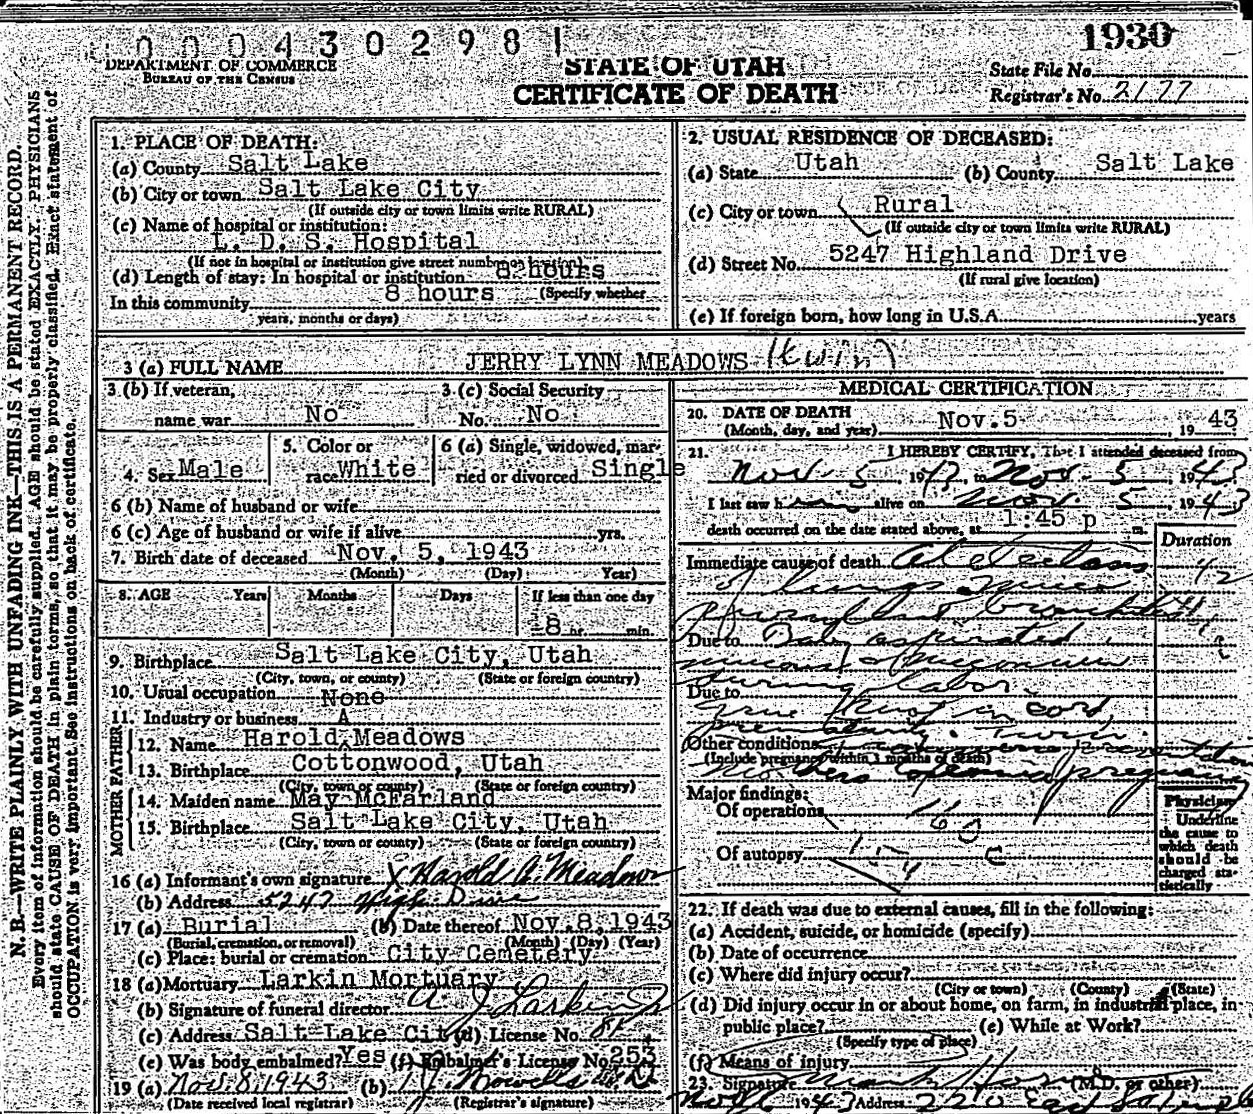 000430298 1
1930
DEPARTMENT OF COMMERCE
BUREAU OF THE CENSUS
STATE OF UTAH
CERTIFICATE OF DEATH
State File No.
Registrar's No. 2177
N. B.—WRITE PLAINLY, WITH UNFADING INK—THIS IS A PERMANENT RECORD.
Every item of information should be carefully supplied. AGE should be stated EXACTLY. PHYSICIANS
should state CAUSE OF DEATH in plain terms, so that it may be properly classified. Exact statement of
OCCUPATION is very important. See instructions on back of certificate.
1. PLACE OF DEATH:
(a) County Salt Lake
(b) City or town Salt Lake City
(If outside city or town limits write RURAL)
(c) Name of hospital or institution:
L. D. S. Hospital
(If not in hospital or institution give street number or location)
(d) Length of stay: In hospital or institution 8 hours
In this community 8 hours (Specify whether
years, months or days)
2. USUAL RESIDENCE OF DECEASED:
(a) State Utah (b) County Salt Lake
(c) City or town Rural
(If outside city or town limits write RURAL)
(d) Street No. 5247 Highland Drive
(If rural give location)
(e) If foreign born, how long in U.S.A. years
3 (a) FULL NAME JERRY LYNN MEADOWS (twin)
3 (b) If veteran,
name war No
3 (c) Social Security
No. No
4. Sex Male
5. Color or
race White
6 (a) Single, widowed, mar-
ried or divorced Single
6 (b) Name of husband or wife
6 (c) Age of husband or wife if alive yrs.
7. Birth date of deceased Nov. 5, 1943
(Month) (Day) Year)
8. AGE Years Months Days If less than one day
8 hr. min.
9. Birthplace Salt Lake City, Utah
(City, town, or county) (State or foreign country)
10. Usual occupation None
11. Industry or business A
FATHER
12. Name Harold Meadows
13. Birthplace Cottonwood, Utah
(City, town or county) (State or foreign country)
MOTHER
14. Maiden name May McFarland
15. Birthplace Salt Lake City, Utah
(City, town or county) (State or foreign country)
16 (a) Informant's own signature X Harold A. Meadows
(b) Address 5247 High. Drive
17 (a) Burial (b) Date thereof Nov. 8, 1943
(Burial, cremation, or removal) (Month) (Day) (Year)
(c) Place: burial or cremation City Cemetery
18 (a) Mortuary Larkin Mortuary
(b) Signature of funeral director A J Larkin Jr
(c) Address Salt Lake City (d) License No.
(e) Was body embalmed? Yes (f) Embalmer's License No. 253
19 (a) Nov. 8, 1943 (b)
(Date received local registrar) (Registrar's signature)
MEDICAL CERTIFICATION
20. DATE OF DEATH Nov. 5, 1943
(Month, day, and year)
21. I HEREBY CERTIFY, That I attended deceased from
Nov. 5, 1943 to Nov. 5, 1943
I last saw him alive on Nov. 5, 1943
death occurred on the date stated above, at 1:45 p m.
Duration
Immediate cause of death Atelectasis
of lungs mucus
Due to Baby aspirated
mucus & meconium
during labor
Due to
cord
prematurity. Twin
Other conditions
(Include pregnancy within 3 months of death)
pregnancy
Major findings:
Of operations 160
Of autopsy
Physician
Underline
the cause to
which death
should be
charged sta-
tistically
22. If death was due to external causes, fill in the following:
(a) Accident, suicide, or homicide (specify)
(b) Date of occurrence
(c) Where did injury occur?
(City or town) (County) (State)
(d) Did injury occur in or about home, on farm, in industrial place, in
public place? (e) While at Work?
(Specify type of place)
(f) Means of injury
23. Signature (M.D. or other)
1943 Address 220 East So Temple